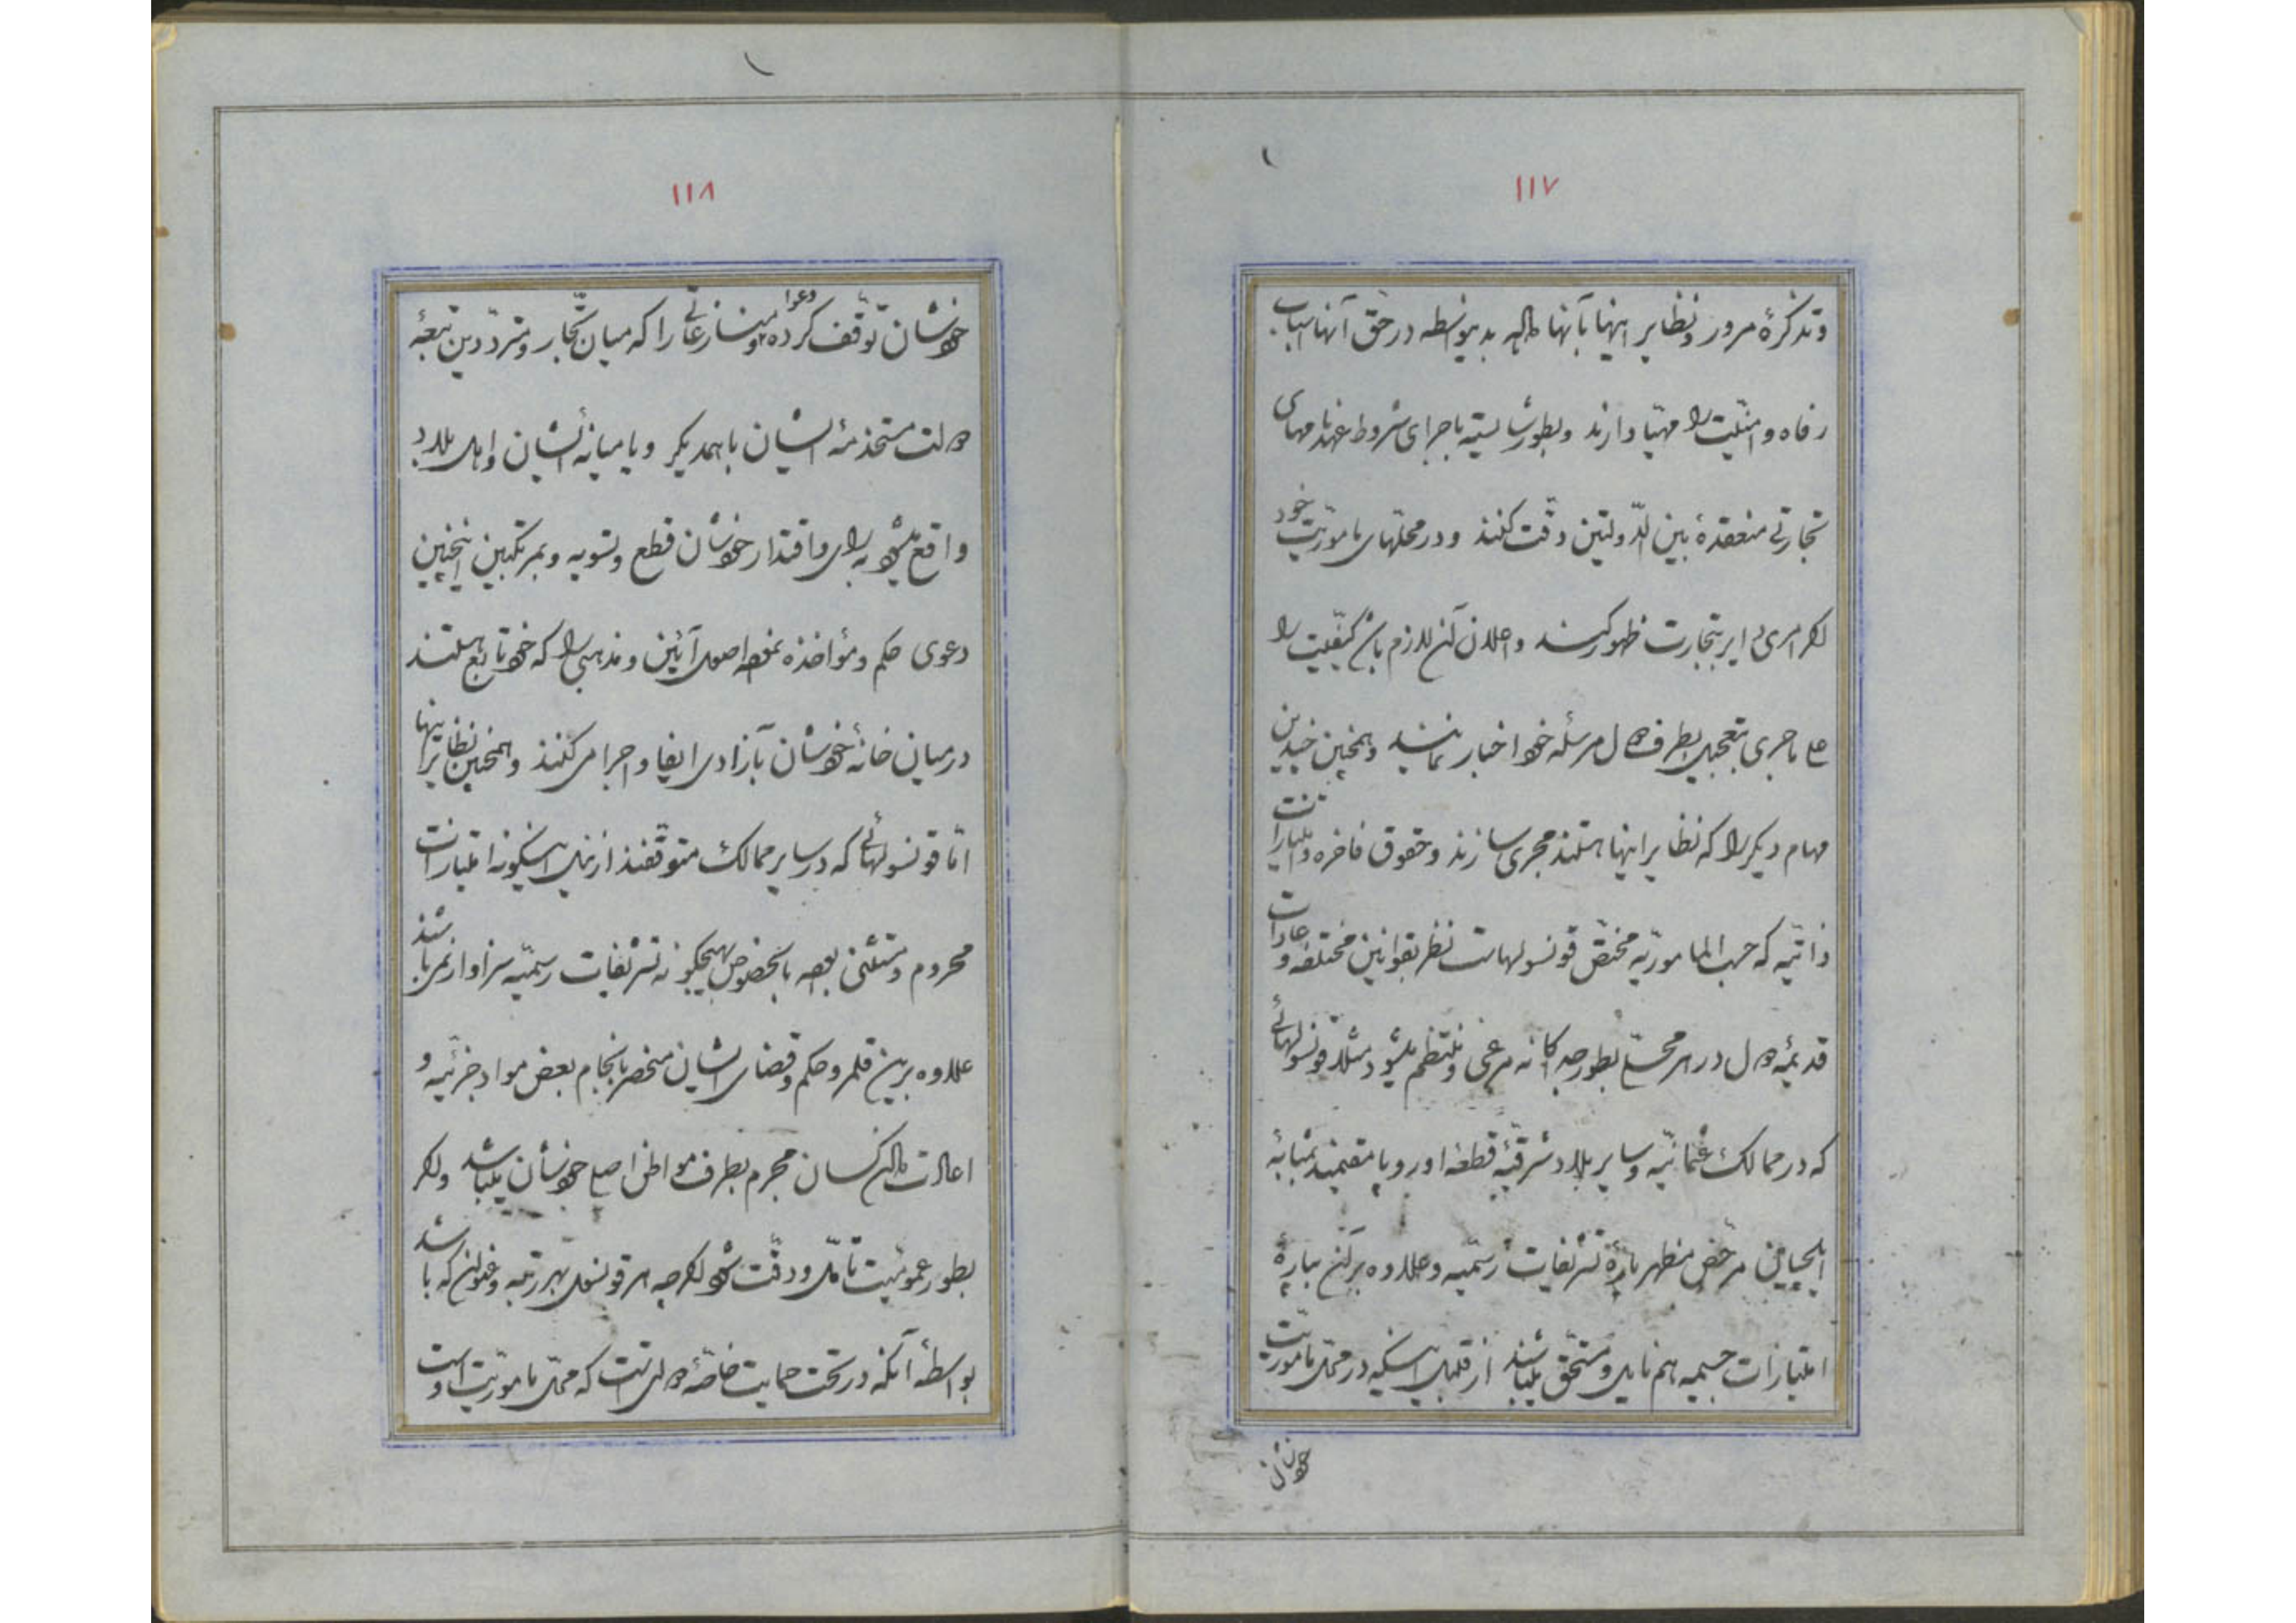 ۱۱۷
و تذکرهٔ مرور و نظایر اینها بآنها داده بدینواسطه در حق آنها اسباب
رفاه و امنیّت را مهیّا دارند و بطور شایسته باجرای شروط عهدنامهای
تجارتی منعقدهٔ بین الدّولتین دقّت کنند و در محلّهای مأموریّت خود
اگر امری دایر بتجارت ظهور کند و اعلان آن لازم باشد کیفیّت را
علی ماجری بتعجیل بطرف دول مرسله خود اخبار نمایند و همچنین چندین
مهام دیگر را که نظایر اینها هستند مجری سازند و حقوق فاخره و امتیازات
ذاتیّه که حسب المأموریّه مختصّ قونسولهاست نظر بقوانین مختلفه و عادات
قدیمهٔ دول در هر محلّ بطور جداگانه مرعی و منتظم میشود مثلا قونسولهائی
که در ممالک عثمانیّه و سایر بلاد شرقیّهٔ قطعهٔ اوروپا مقیمند بمثابهٔ
ایلچیان مرخّص مظهر پارهٔ تشریفات رسمیّه و علاوه بر آن بپارهٔ
امتیازات جسیمه هم نایل و مستحقّ میباشند از قبیل اینکه در محلّ مأموریّت
خودشان
۱۱۸
خودشان توقّف کرده دعوا و منازعاتی را که میان تجّار و متردّدین تبعهٔ
دولت مستخدمهٔ ایشان باهمدیگر و یا میانهٔ ایشان و اهل بلاد
واقع میشود به رای و اقتدار خودشان قطع و تسویه و بمرتکبین اینچنین
دعوی حکم و مؤاخذه نموده اصول آئین و مذهبی را که خود تابع هستند
در میان خانهٔ خودشان بآزادی ایفا و اجرا می کنند و همچنین نظایر اینها
امّا قونسولهائی که در سایر ممالک متوقّفند از نیل اینگونه امتیازات
محروم و مستثنی بوده بالخصوص بهیچگونه تشریفات رسمیّه سزاوار نمی باشند
علاوه بر این قلمرو حکم و قضای ایشان منحصر بانجام بعض مواد جزئیّه و
اعادت دادن کسان مجرم بطرف مواطن اصلی خودشان میباشد و اگر
بطور عمومیّت تأمّل و دقّت شود اگرچه هر قونسول بهر رتبه و عنوان که باشد
بواسطهٔ آنکه در تحت حمایت خاصّهٔ دولتی است که محلّ مأموریّت اوست